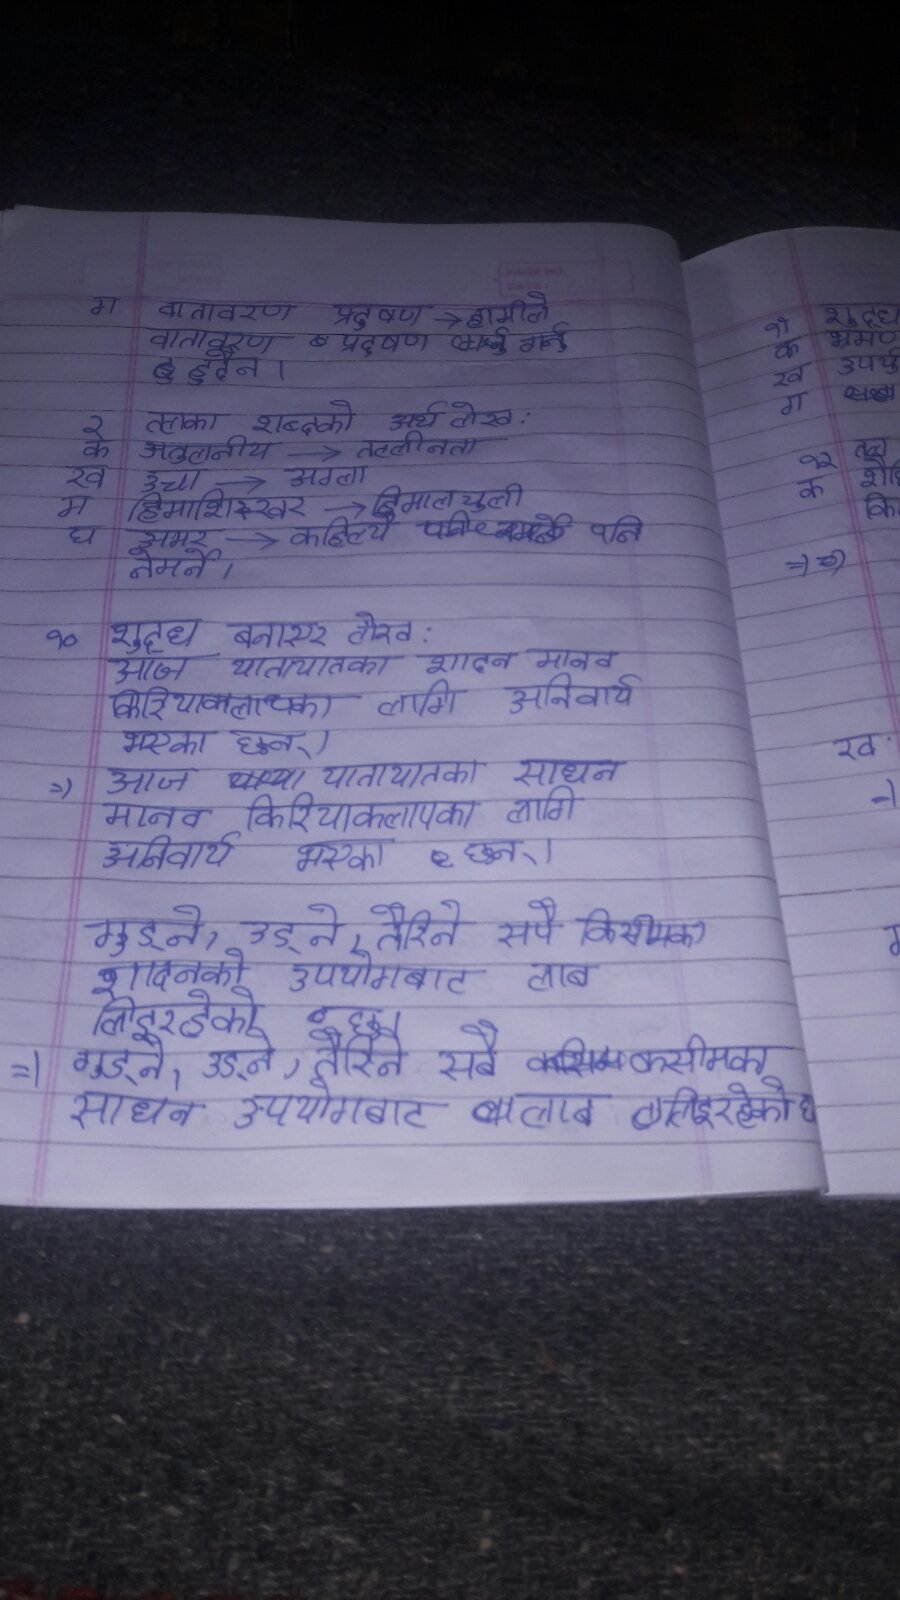 ग वातावरण प्रदुषण → हामीले
वातावरण प्रदषण गर्नु
हुदैन ।
२ तलका शब्दको अर्थ लेख :
क अतुलनीय → तल्लीनता
ख उचा → अग्ला
ग हिमाशिखर → हिमाल चुली
घ अमर → कहिल्यै पनि
नमर्ने ।
१० शुद्ध बनाएर लेख :
आज यातायातका शादन मानव
किरियाकलापका लागि अनिवार्य
भएका छन् ।
⇒) आज यातायातका साधन
मानव किरियाकलापका लागि
अनिवार्य भएका छन् ।
गुड्ने, उड्ने, तैरिने सपै किसीमका
शादनको उपयोगबाट लाब
लिइरहेको छ ।
⇒) गुड्ने, उड्ने, तैरिने सबै कसीमका
साधन उपयोगबाट लाब लिइरहेको छ
११ शुद्ध
क भ्रमण
ख उपर्यु
ग
१२ तल
क शै
कि
⇒)
ख